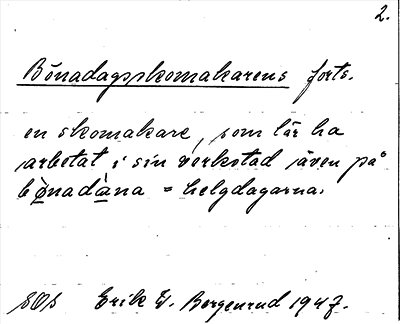 2.
Bönadagsskomakarens forts.
en skomakare, som lär ha
arbetat i sin verkstad även på
bönadàna = helgdagarna.
SOS Erik G. Bergenrud 1947.